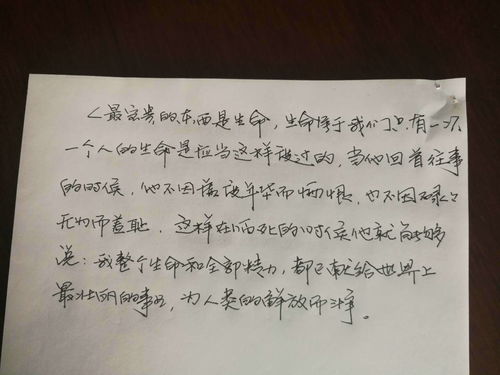 人最宝贵的东西是生命，生命属于我们只有一次
一个人的生命是应当这样度过的，当他回首往事
的时候，他不因虚度年华而悔恨，也不因碌碌
无为而羞耻．这样在临死的时候他就能够
说：我整个生命和全部精力，都已献给世界上
最壮丽的事业，为人类的解放而斗争。